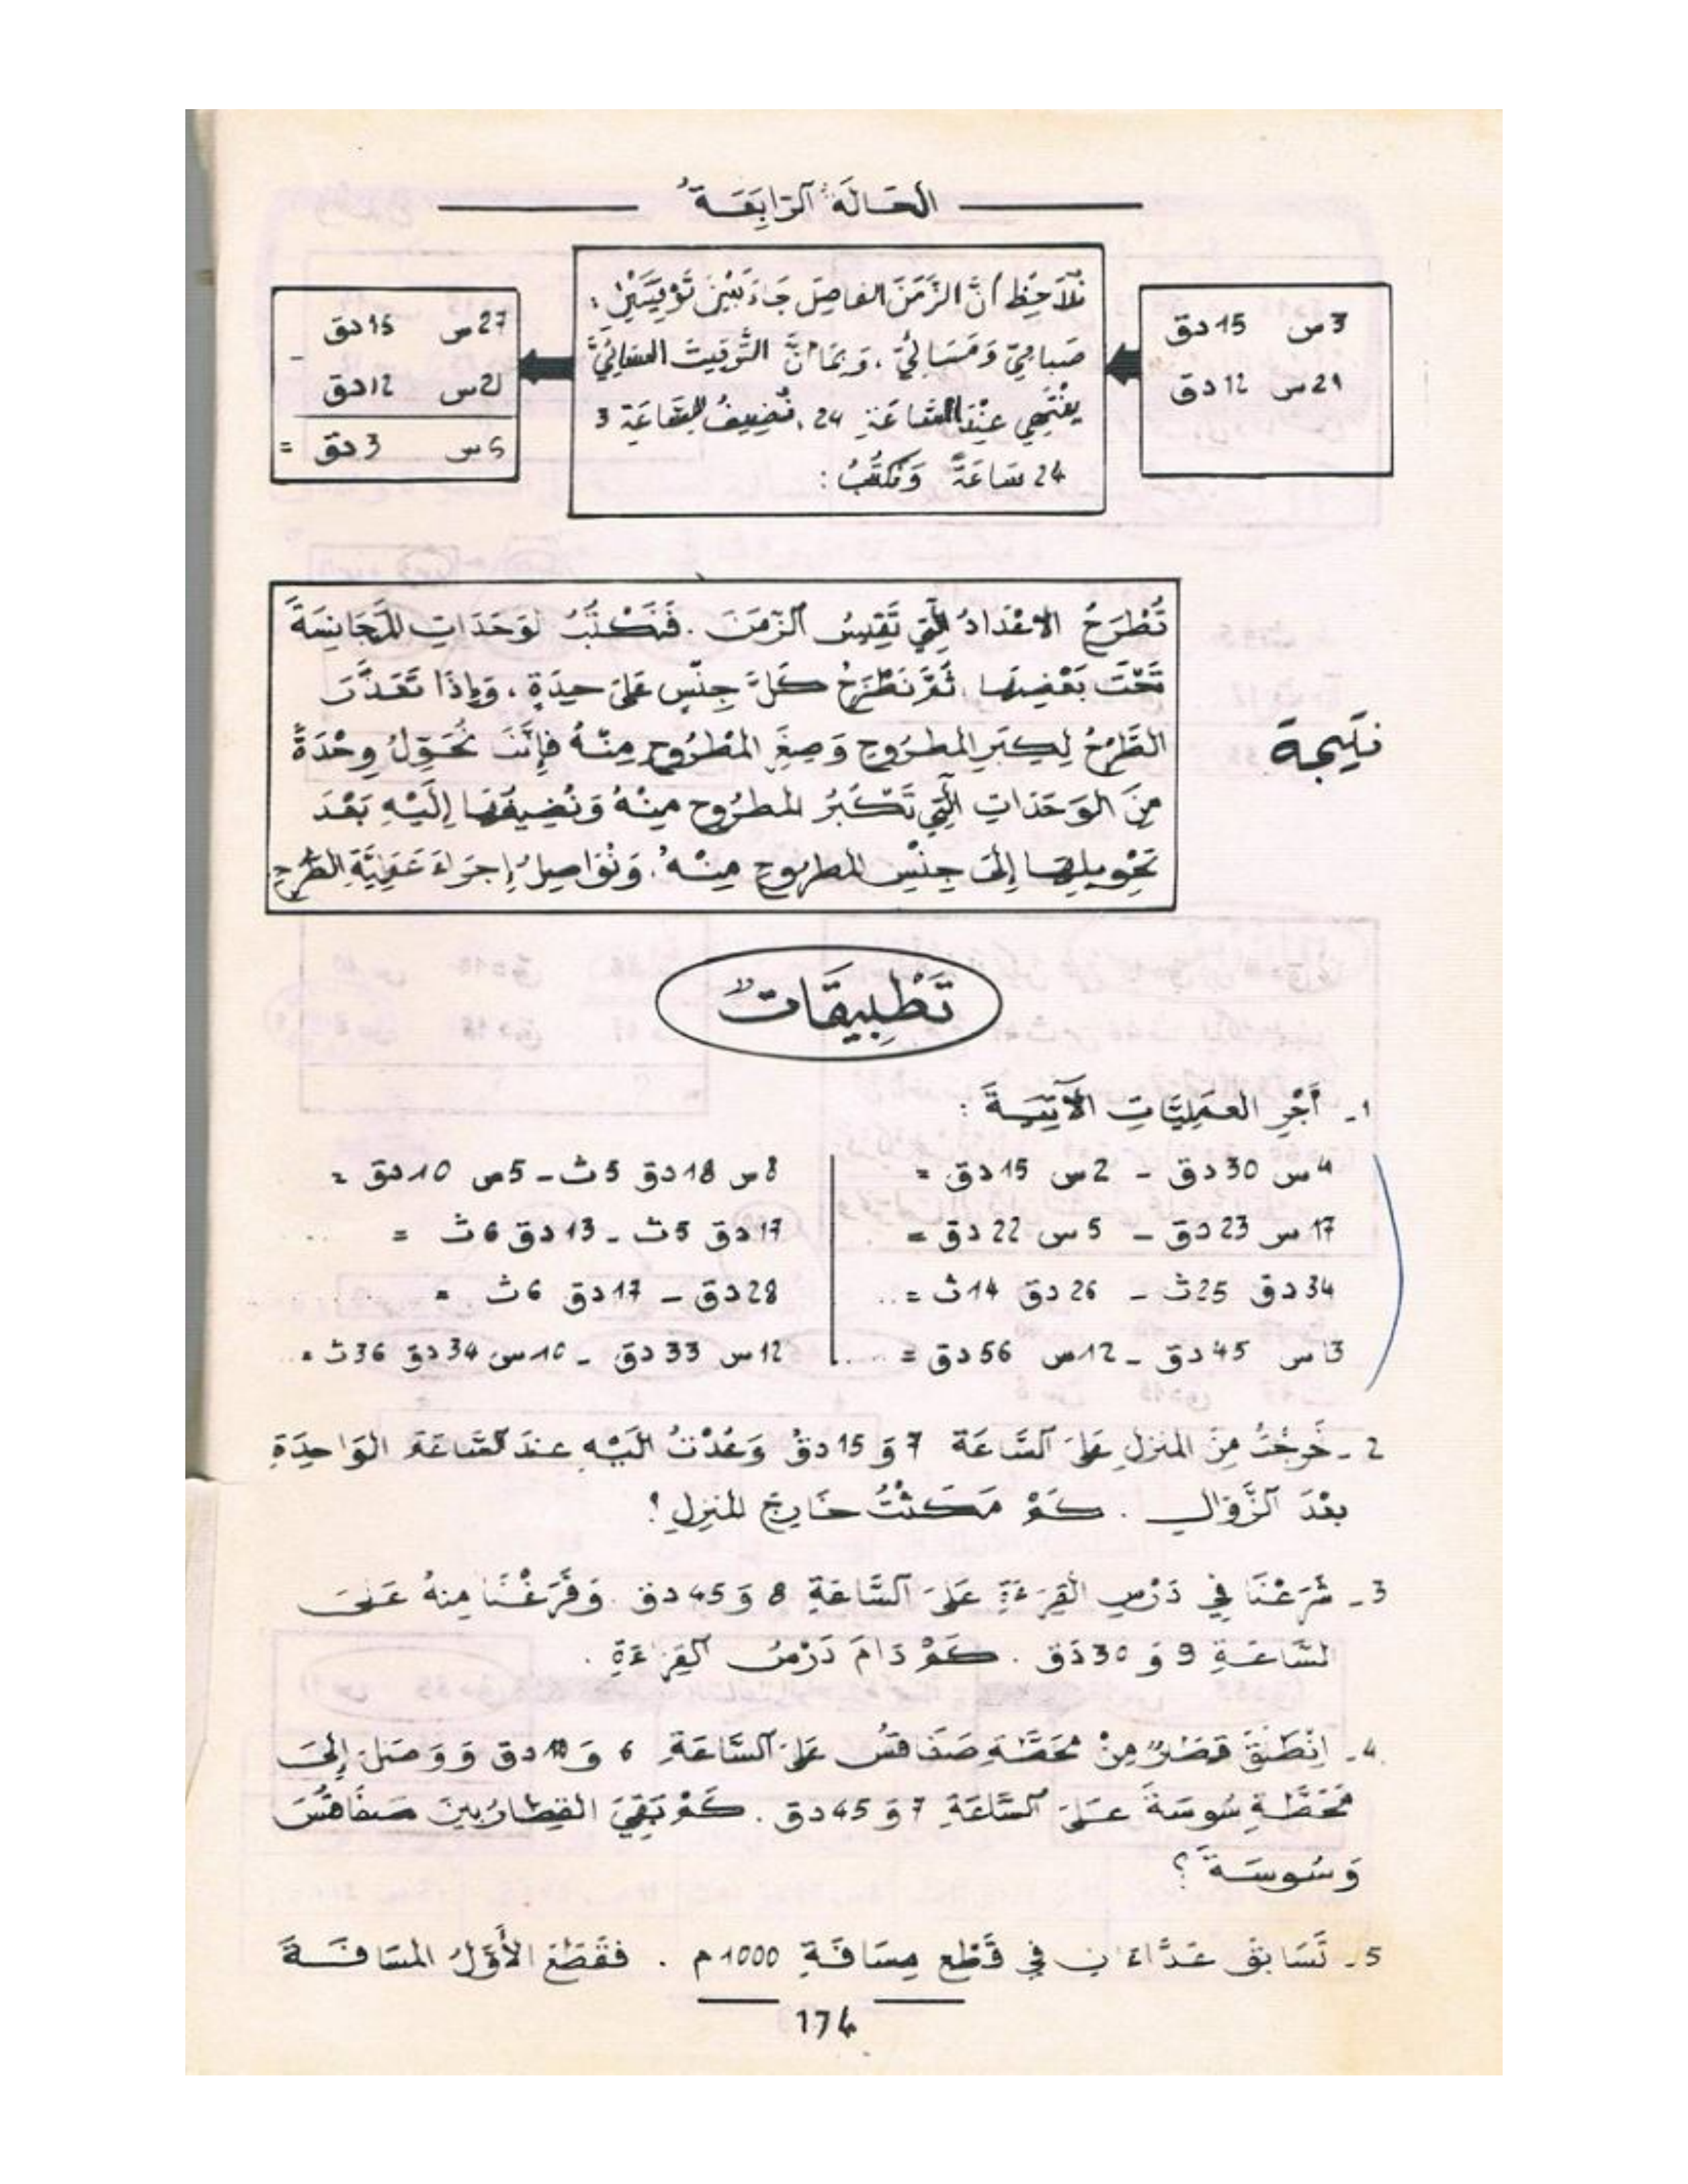 الحَالَةُ الرَّابِعَةُ
3س 15دق
21س 12دق
نُلاَحِظُ أنَّ الزَّمَنَ الفاصِلَ جَاءَ بَيْنَ تَوْقِيتَيْنِ :
صَباحِيّ وَمَسَائِيّ ، وَبِمَا أنَّ التَّوْقِيتَ المسَائِيَّ
يَنْتَهِي عِنْدَ السَّاعَةِ 24 ، نُضِيفُ لِلسَّاعَةِ 3
24 سَاعَةً وَنَكْتُبُ :
27س 15دق
-
21س 12دق
6س 3دق =
تُطْرَحُ الاعْدَادُ الَّتِي تَقِيسُ الزَّمَنَ . فَنَكْتُبُ الوَحَدَاتِ المتَجَانِسَةَ
تَحْتَ بَعْضِهَا . ثُمَّ نَطْرَحُ كُلَّ جِنْسٍ عَلَى حِدَةٍ ، وَإِذَا تَعَذَّرَ
الطَّرْحُ لِكِبَرِ المطرُوحِ وَصِغَرِ المَطْرُوحِ مِنْهُ فَإِنَّنَا نُحَوِّلُ وِحْدَةً
مِنَ الوَحَدَاتِ الَّتِي تَكْبُرُ المطرُوحِ مِنْهُ وَنُضِيفُهَا إِلَيْهِ بَعْدَ
تَحْوِيلِهَا إِلَى جِنْسِ المطروحِ مِنْهُ . وَنُوَاصِلُ إِجرَاءَ عَمَلِيَّةِ الطَّرْحِ
نتيجة
تَطْبِيقَات
1 - أَجْرِ العَمَلِيَّاتِ الآتِيَةَ :
4س 30دق - 2س 15دق =
8س 18دق 5ث - 5س 10دق =
17س 23دق - 5س 22دق =
17دق 5ث - 13دق 6ث = ...
34دق 25ث - 26دق 14ث = ..
28دق - 17دق 6ث = ......
13س 45دق - 12س 56دق = ....
12س 33دق - 10س 34دق 36ث = ..
2 - خَرجْتُ مِنَ المنزلِ عَلَى السَّاعَة 7 وَ 15دقُ وَعُدْتُ إليْهِ عندَ السَّاعَةِ الوَاحِدَةِ
بعْدَ الزَّوَالِ . كَمْ مَكَثْتُ خَارِجَ المنزِلِ ؟
3 - شَرَعْنَا فِي دَرْسِ القِرَءَةِ عَلَى السَّاعَةِ 8 وَ 45دق . وَفَرَغْنَا مِنهُ عَلَى
السَّاعَةِ 9 وَ 30دَق . كَمْ دَامَ دَرْسُ القِرَءَةِ .
4 - اِنْطَلَقَ قِطَارٌ مِنْ مَحَطَّةِ صَفَاقسُ عَلَى السَّاعَةِ 6 وَ 10دق وَوَصَلَ إِلَى
مَحَطَّةِ سُوسَةَ عَلَى السَّاعَةِ 7 وَ 45دق . كَمْ بَقِيَ القِطارُ بينَ صَفَاقسَ
وَسُوسَةَ ؟
5 - تَسَابقَ عَدَّاءَانِ في قَطْعِ مِسَافَةِ 1000م . فقَطَعَ الأَوَّلُ المسَافَةَ
174